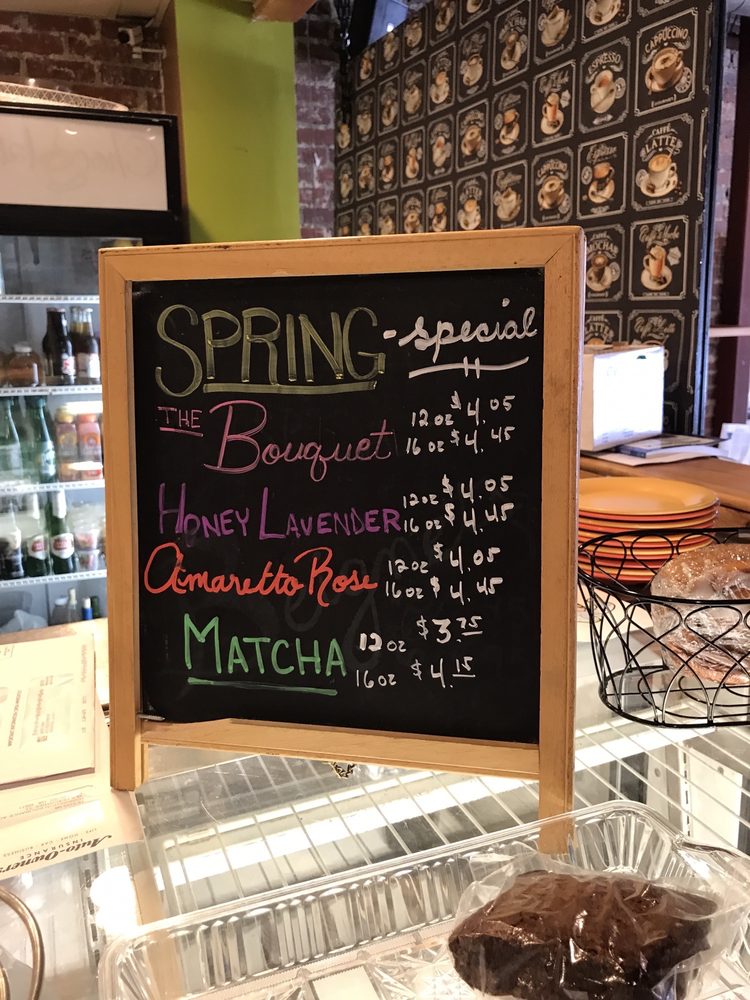 SPRING-special
THE Bouquet 12oz $4.05
16oz $4.45
HONEY LAVENDER 12oz $4.05
16oz $4.45
Amaretto Rose 12oz $4.05
16oz $4.45
MATCHA 12oz $3.75
16oz $4.15
CAPPUCCINO
ESPRESSO
CAFFÈ
LATTE
MOCHA
LATTE
Auto-Owners
INSURANCE
LIFE HOME CAR BUSINESS